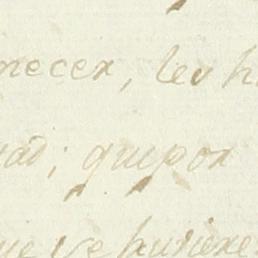 necex, lev h
ad; quepor
ue se huviexe